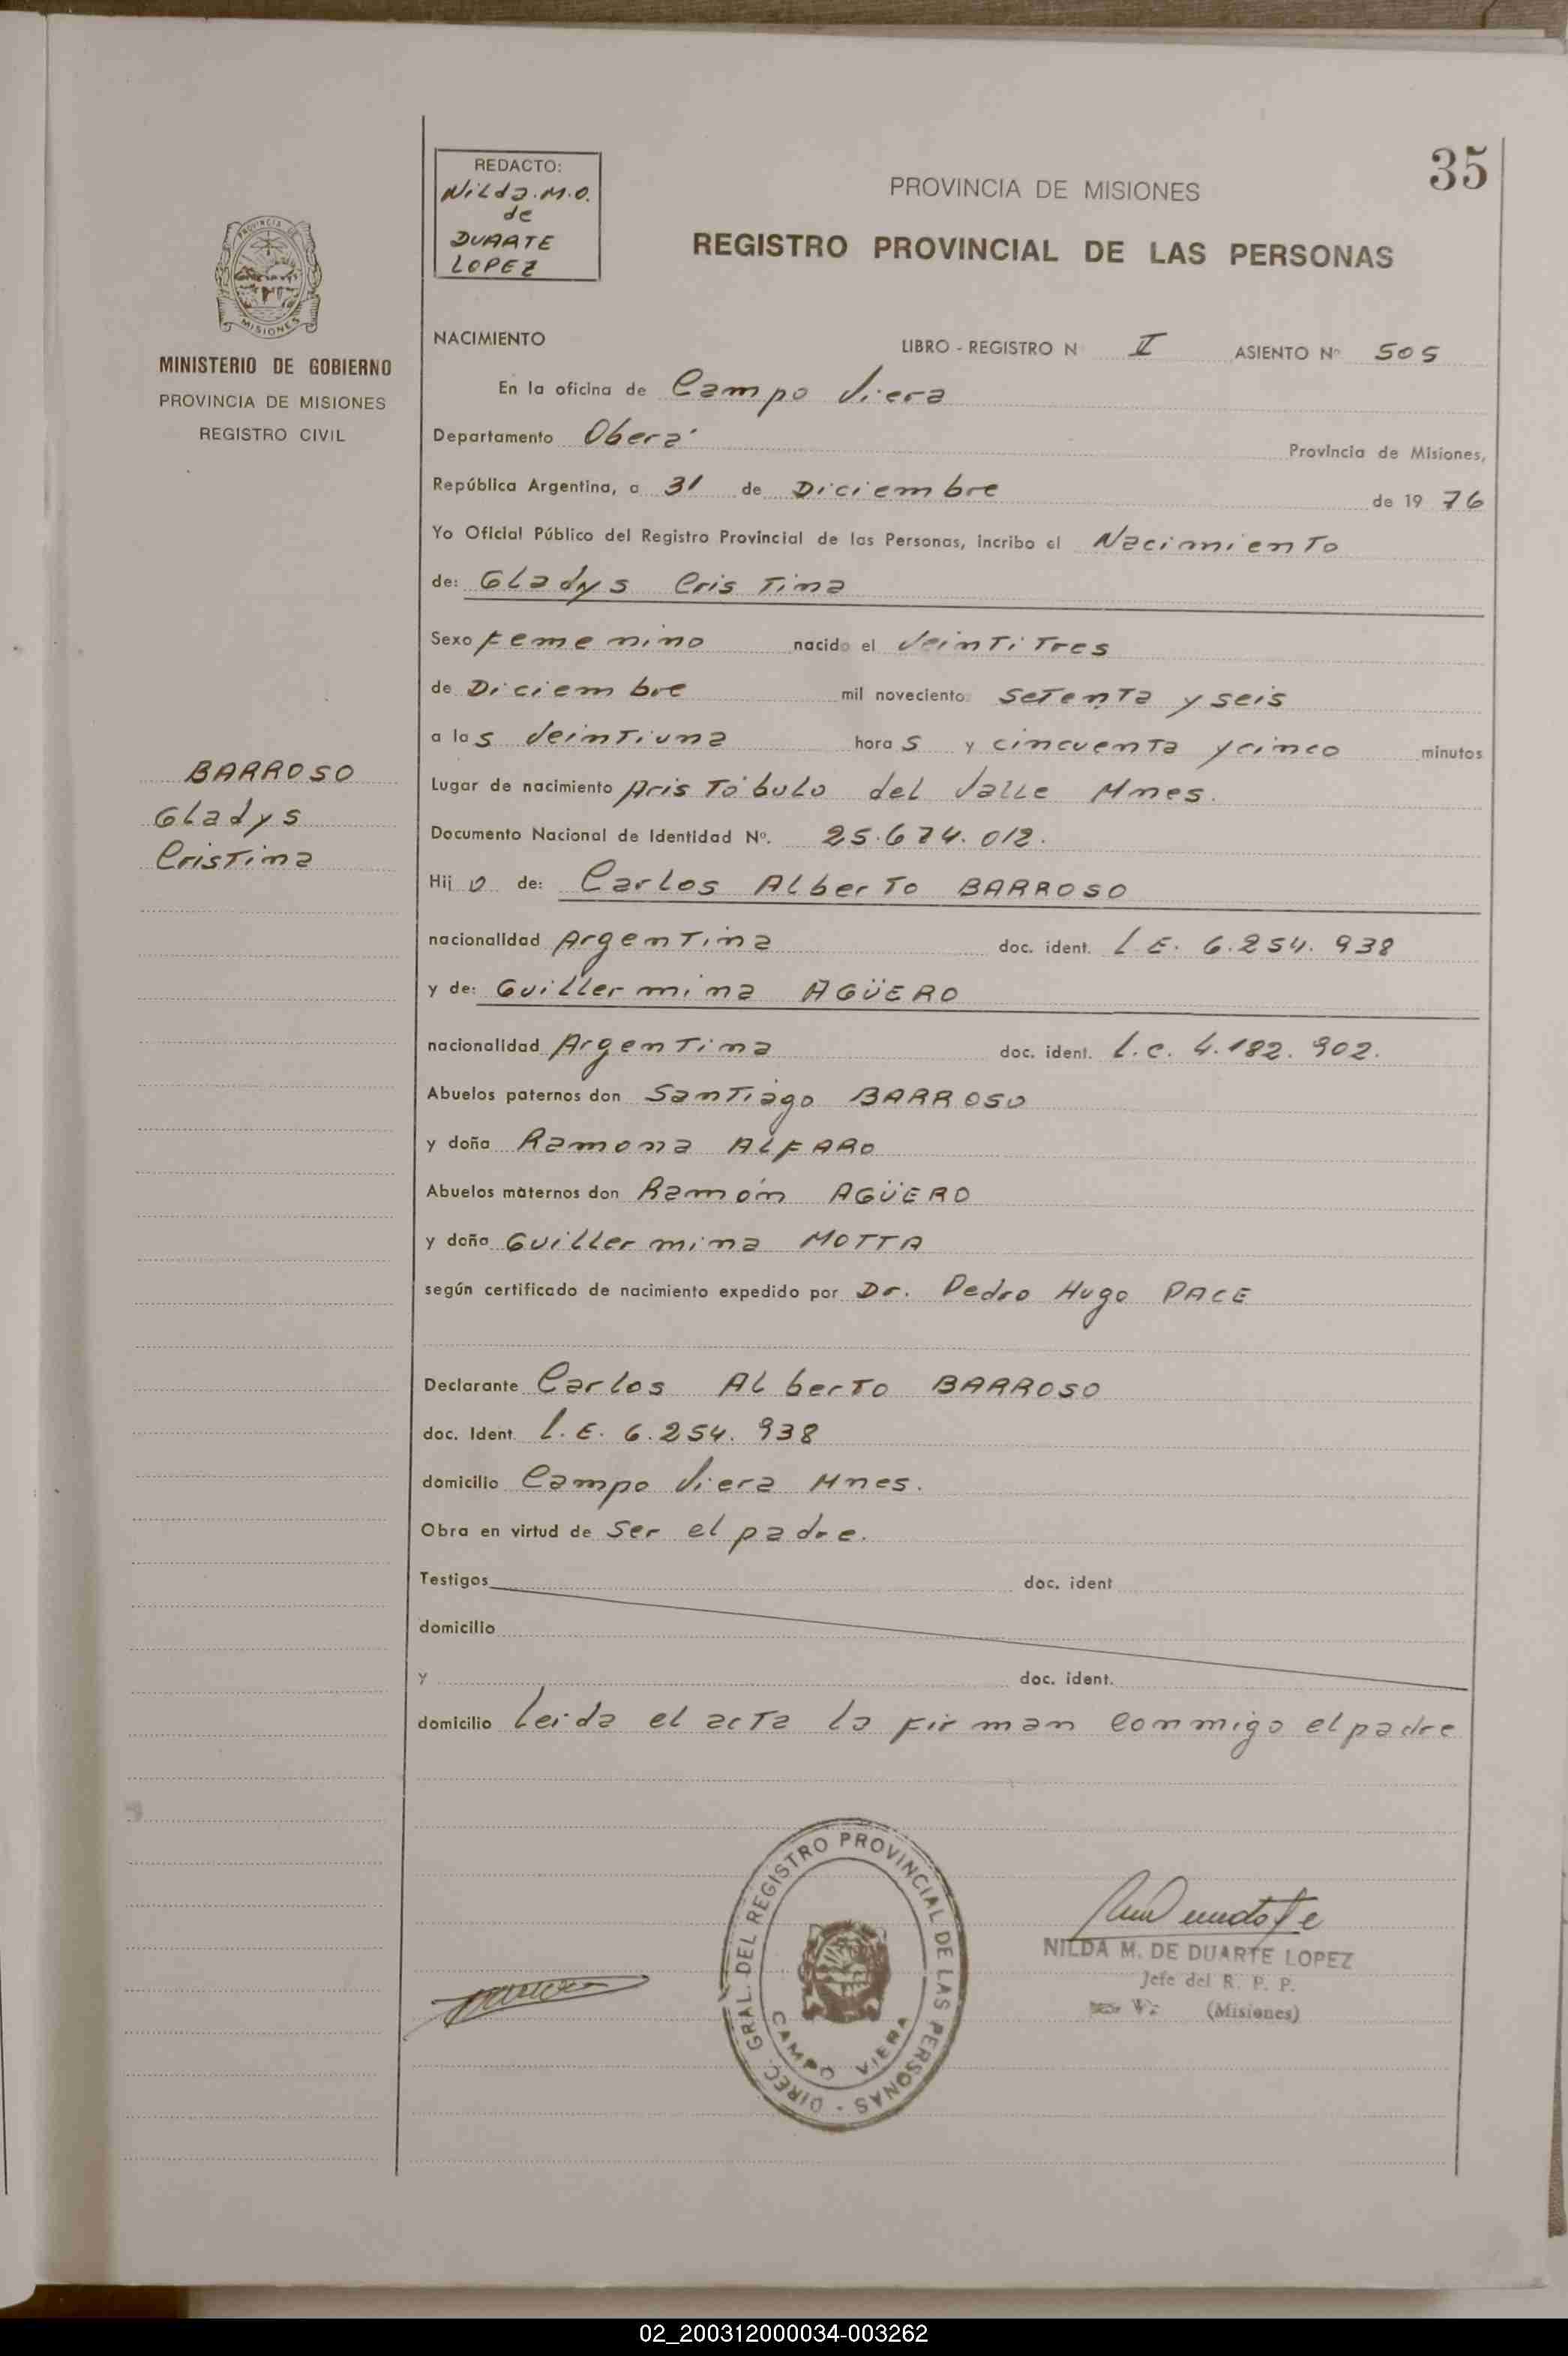 35
REDACTO:
Nilda.M.O.
de
DUARTE
LOPEZ
PROVINCIA DE MISIONES
REGISTRO PROVINCIAL DE LAS PERSONAS
PROVINCIA DE
MISIONES
MINISTERIO DE GOBIERNO
PROVINCIA DE MISIONES
REGISTRO CIVIL
NACIMIENTO
LIBRO - REGISTRO N II ASIENTO Nº 505
En la oficina de Campo Viera
Departamento Oberá Provincia de Misiones,
República Argentina, a 31 de Diciembre de 19 76
Yo Oficial Público del Registro Provincial de las Personas, incribo el Nacimiento
de: Gladys Cristina
Sexo Femenino nacido el Veintitres
de Diciembre mil noveciento setenta y seis
a las Veintiuna horas y cincuenta y cinco minutos
BARROSO
Gladys
Cristina
Lugar de nacimiento Aristóbulo del Valle Mnes.
Documento Nacional de Identidad Nº. 25.674.012.
Hijo de: Carlos Alberto BARROSO
nacionalidad Argentina doc. ident. L.E. 6.254.938
y de: Guillermina AGÜERO
nacionalidad Argentina doc. ident. L.C. 4.182.902.
Abuelos paternos don Santiago BARROSO
y doña Ramona ALFARO
Abuelos maternos don Ramón AGÜERO
y doña Guillermina MOTTA
según certificado de nacimiento expedido por Dr. Pedro Hugo PACE
Declarante Carlos Alberto BARROSO
doc. Ident. L.E. 6.254.938
domicilio Campo Viera Mnes.
Obra en virtud de ser el padre.
Testigos doc. ident
domicilio
y doc. ident.
domicilio Leida el acta la firman conmigo el padre
DIREC. GRAL. DEL REGISTRO PROVINCIAL DE LAS PERSONAS -
CAMPO VIERA
NILDA M. DE DUARTE LOPEZ
Jefe del R. P. P.
(Misiones)
02_200312000034-003262